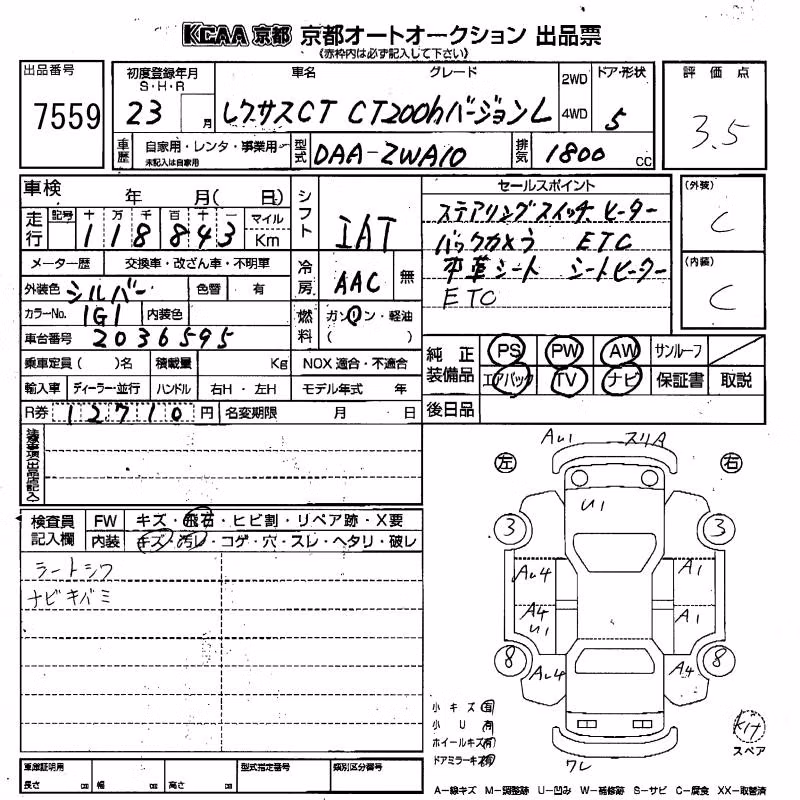 KCAA 京都 京都オートオークション 出品票
《赤枠内は必ず記入して下さい》
出品番号
7559
初度登録年月
S・H・R
23 月
車名 グレード
レクサスCT CT200hバージョンL
2WD
4WD
ドア・形状
5
評価点
3.5
車歴 自家用・レンタ・事業用
未記入は自家用
型式 DAA-ZWA10
排気 1800 CC
車検 年 月( 日)
走行 記号 十 万 千 百 十 一 マイル
118843 Km
シフト IAT
メーター歴 交換車・改ざん車・不明車
外装色 シルバー 色替 有
冷房 AAC 無
カラーNo. 1G1 内装色
燃料 ガソリン・軽油
( )
車台番号 2036595
乗車定員( )名 積載量 Kg NOX適合・不適合
輸入車 ディーラー・並行 ハンドル 右H・左H モデル年式 年
R券 12710 円 名変期限 月 日
注意事項(出品店記入)
セールスポイント
ステアリングスイッチ ヒーター
バックカメラ ETC
本革シート シートヒーター
ETC
(外装)
C
(内装)
C
純正装備品 PS PW AW サンルーフ
エアバック TV ナビ 保証書 取説
後日品
検査員記入欄 FW キズ・飛石・ヒビ割・リペア跡・X要
内装 キズ・汚レ・コゲ・穴・スレ・ヘタリ・破レ
ナビキバミ
左 右
AU1 スリA
U1
3 3
AU4 A1
A4 A1
U1
8 8
AU4 A4
ワレ
小キズ(有)
小U(有)
ホイールキズ(有)
ドアミラーキズ(有)
Kit
スペア
車庫証明用
長さ cm 幅 cm 高さ cm
型式指定番号 類別区分番号
A−線キズ M−調整跡 U−凹み W−補修跡 S−サビ C−腐食 XX−取替済